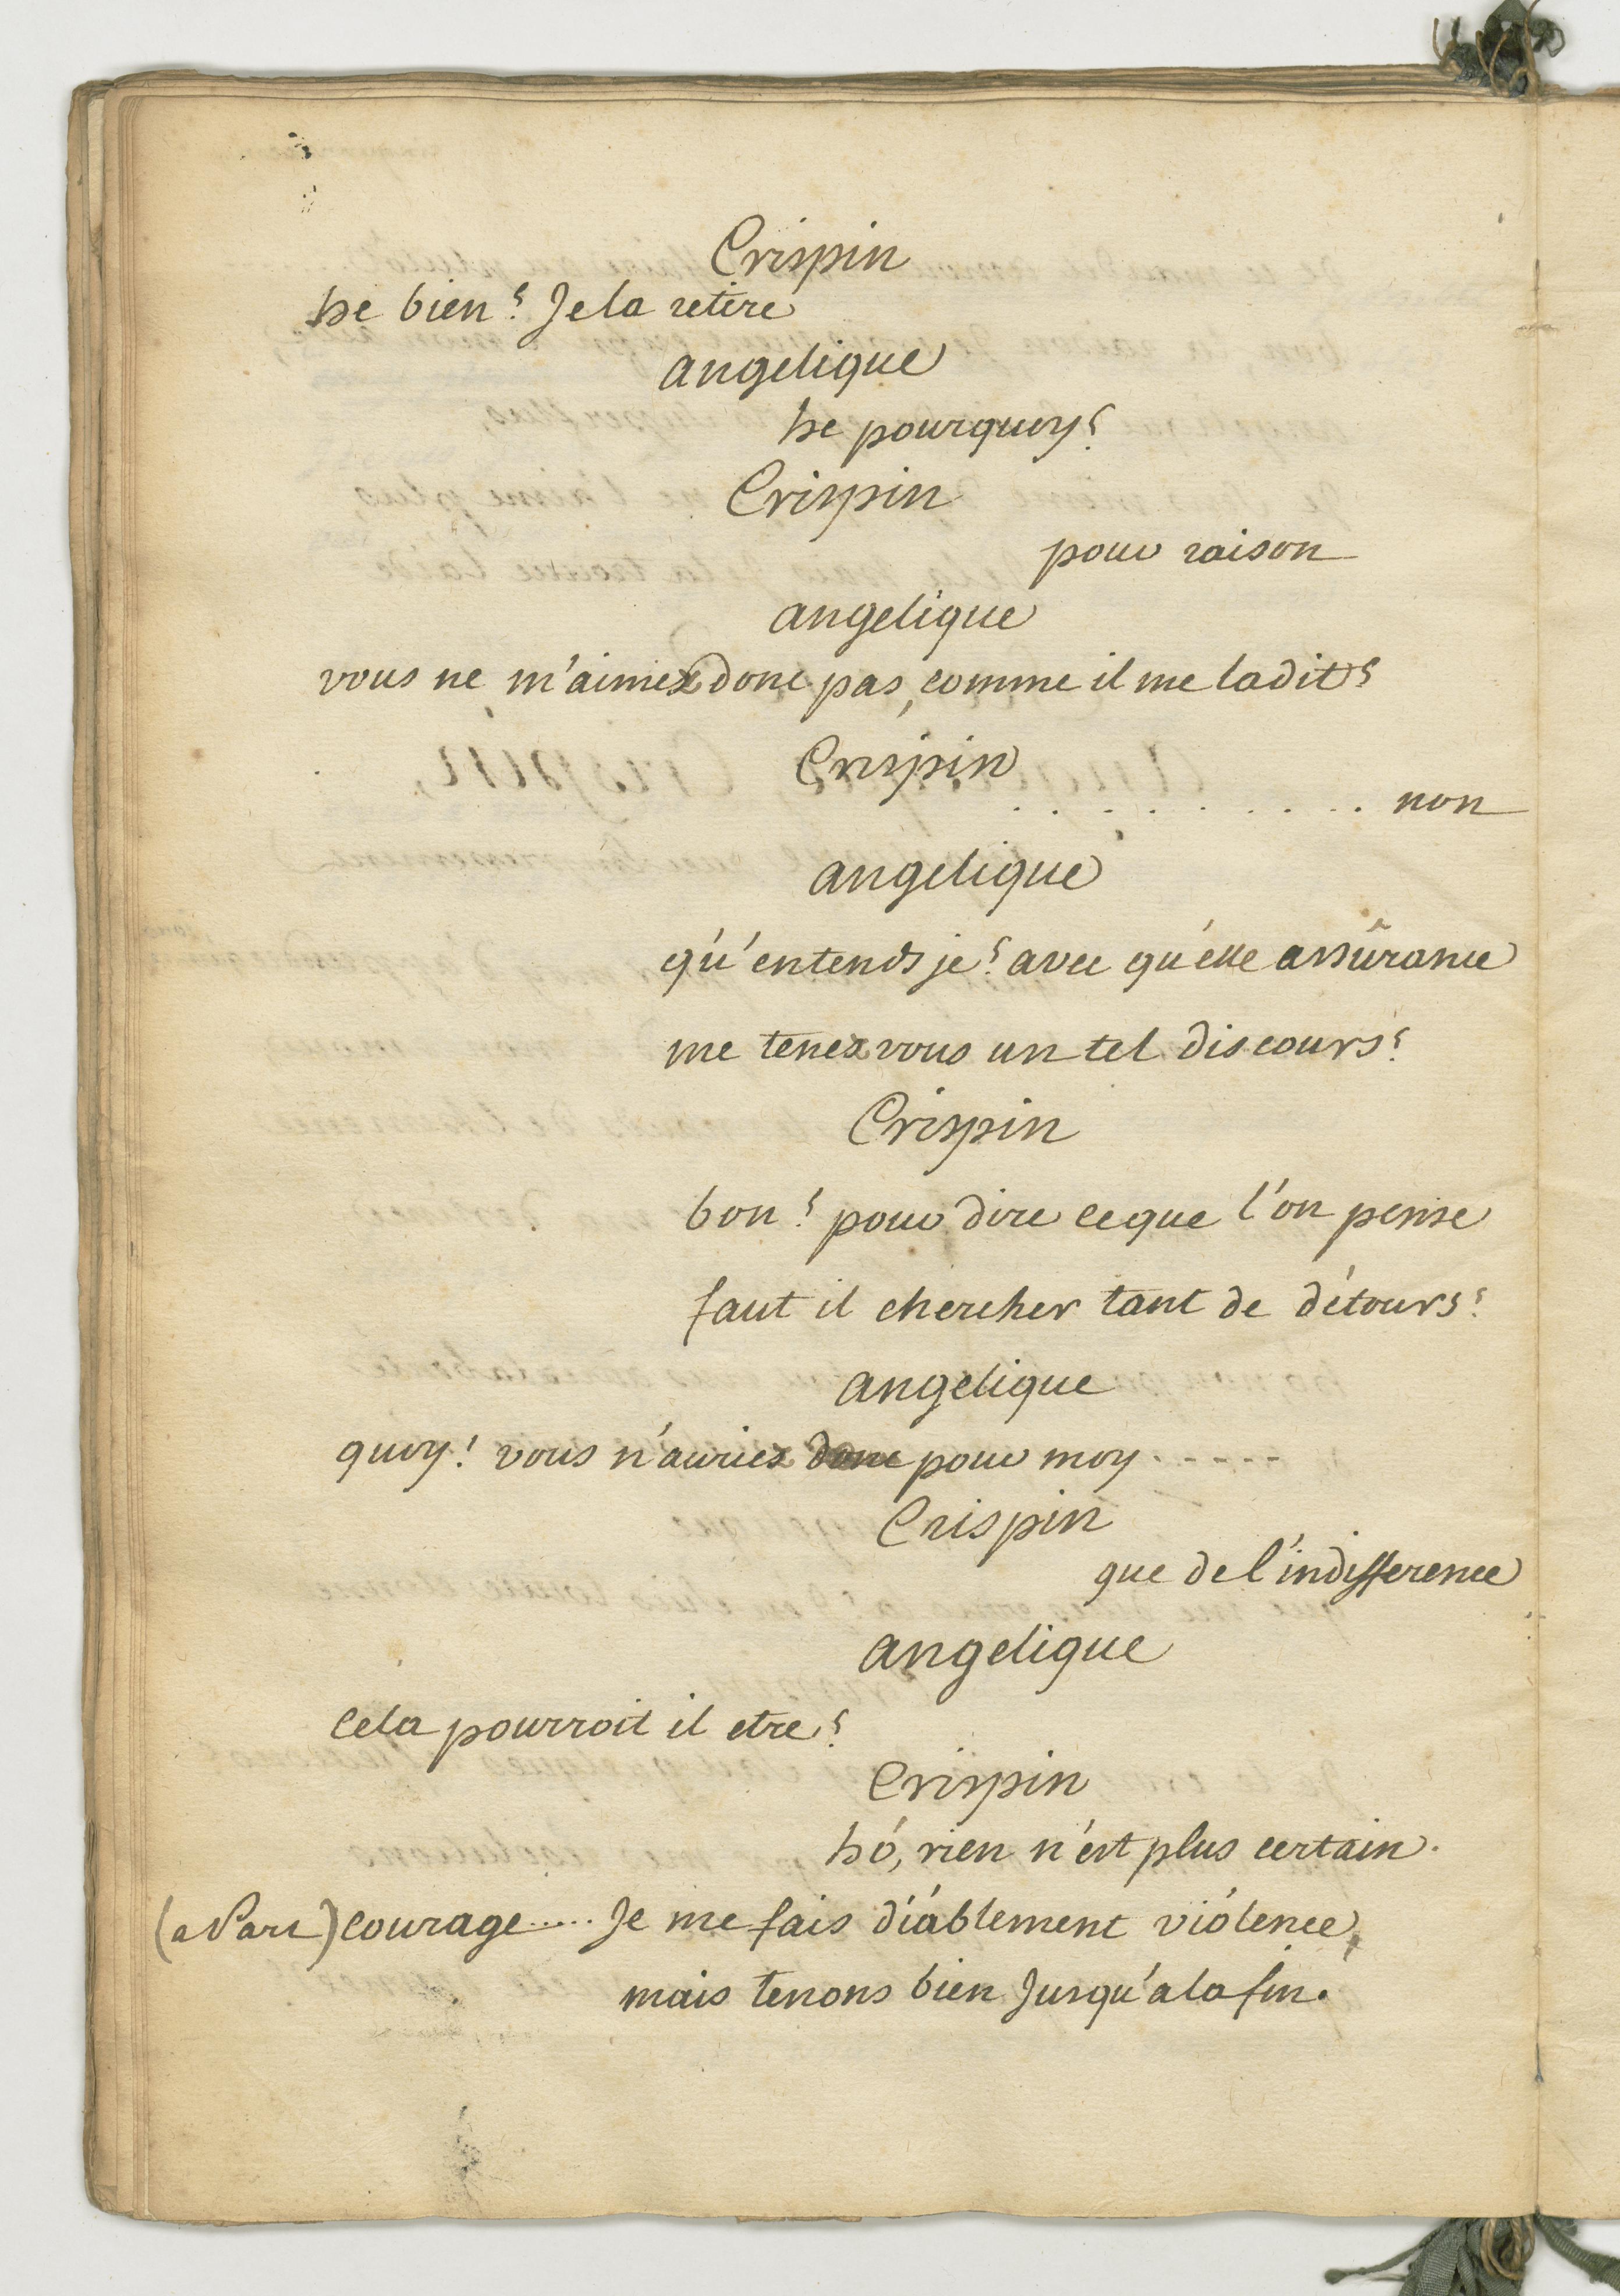 Crispin
he bien? Je la retire
angelique
he pourquoy?
Crispin
pour raison
angelique
vous ne m'aimez donc pas, comme il me la dit?
Crispin
. . . . . . . . . non
angelique
qu'entends je? avec qu'elle assûrance
me tenez vous un tel discours?
Crispin
bon? pour dire ce que l'on pense
faut il chercher tant de détours?
angelique
quoy! vous n'auriez donc pour moy . - - - -
Crispin
que de l'indifference
angelique
Cela pourroit il etre?
Crispin
hó, rien n'est plus certain.
(a Part) courage ..... Je me fais diáblement viólence,
mais tenons bien Jusqu'a la fin.